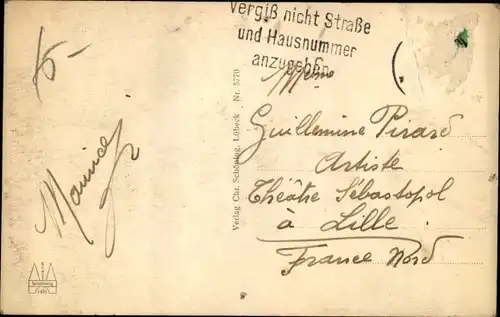 Vergiß nicht Straße
und Hausnummer
anzugeben
Mme
Guillemine Pirard
Artiste
Théâtre Sébastopol
à Lille
France Nord
Maurice
Verlag Chr. Schöning, Lübeck Nr. 5770
Schöning